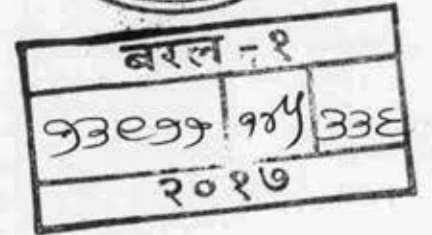 बरल - १
१३९११ १४५ ३३६
२०१७